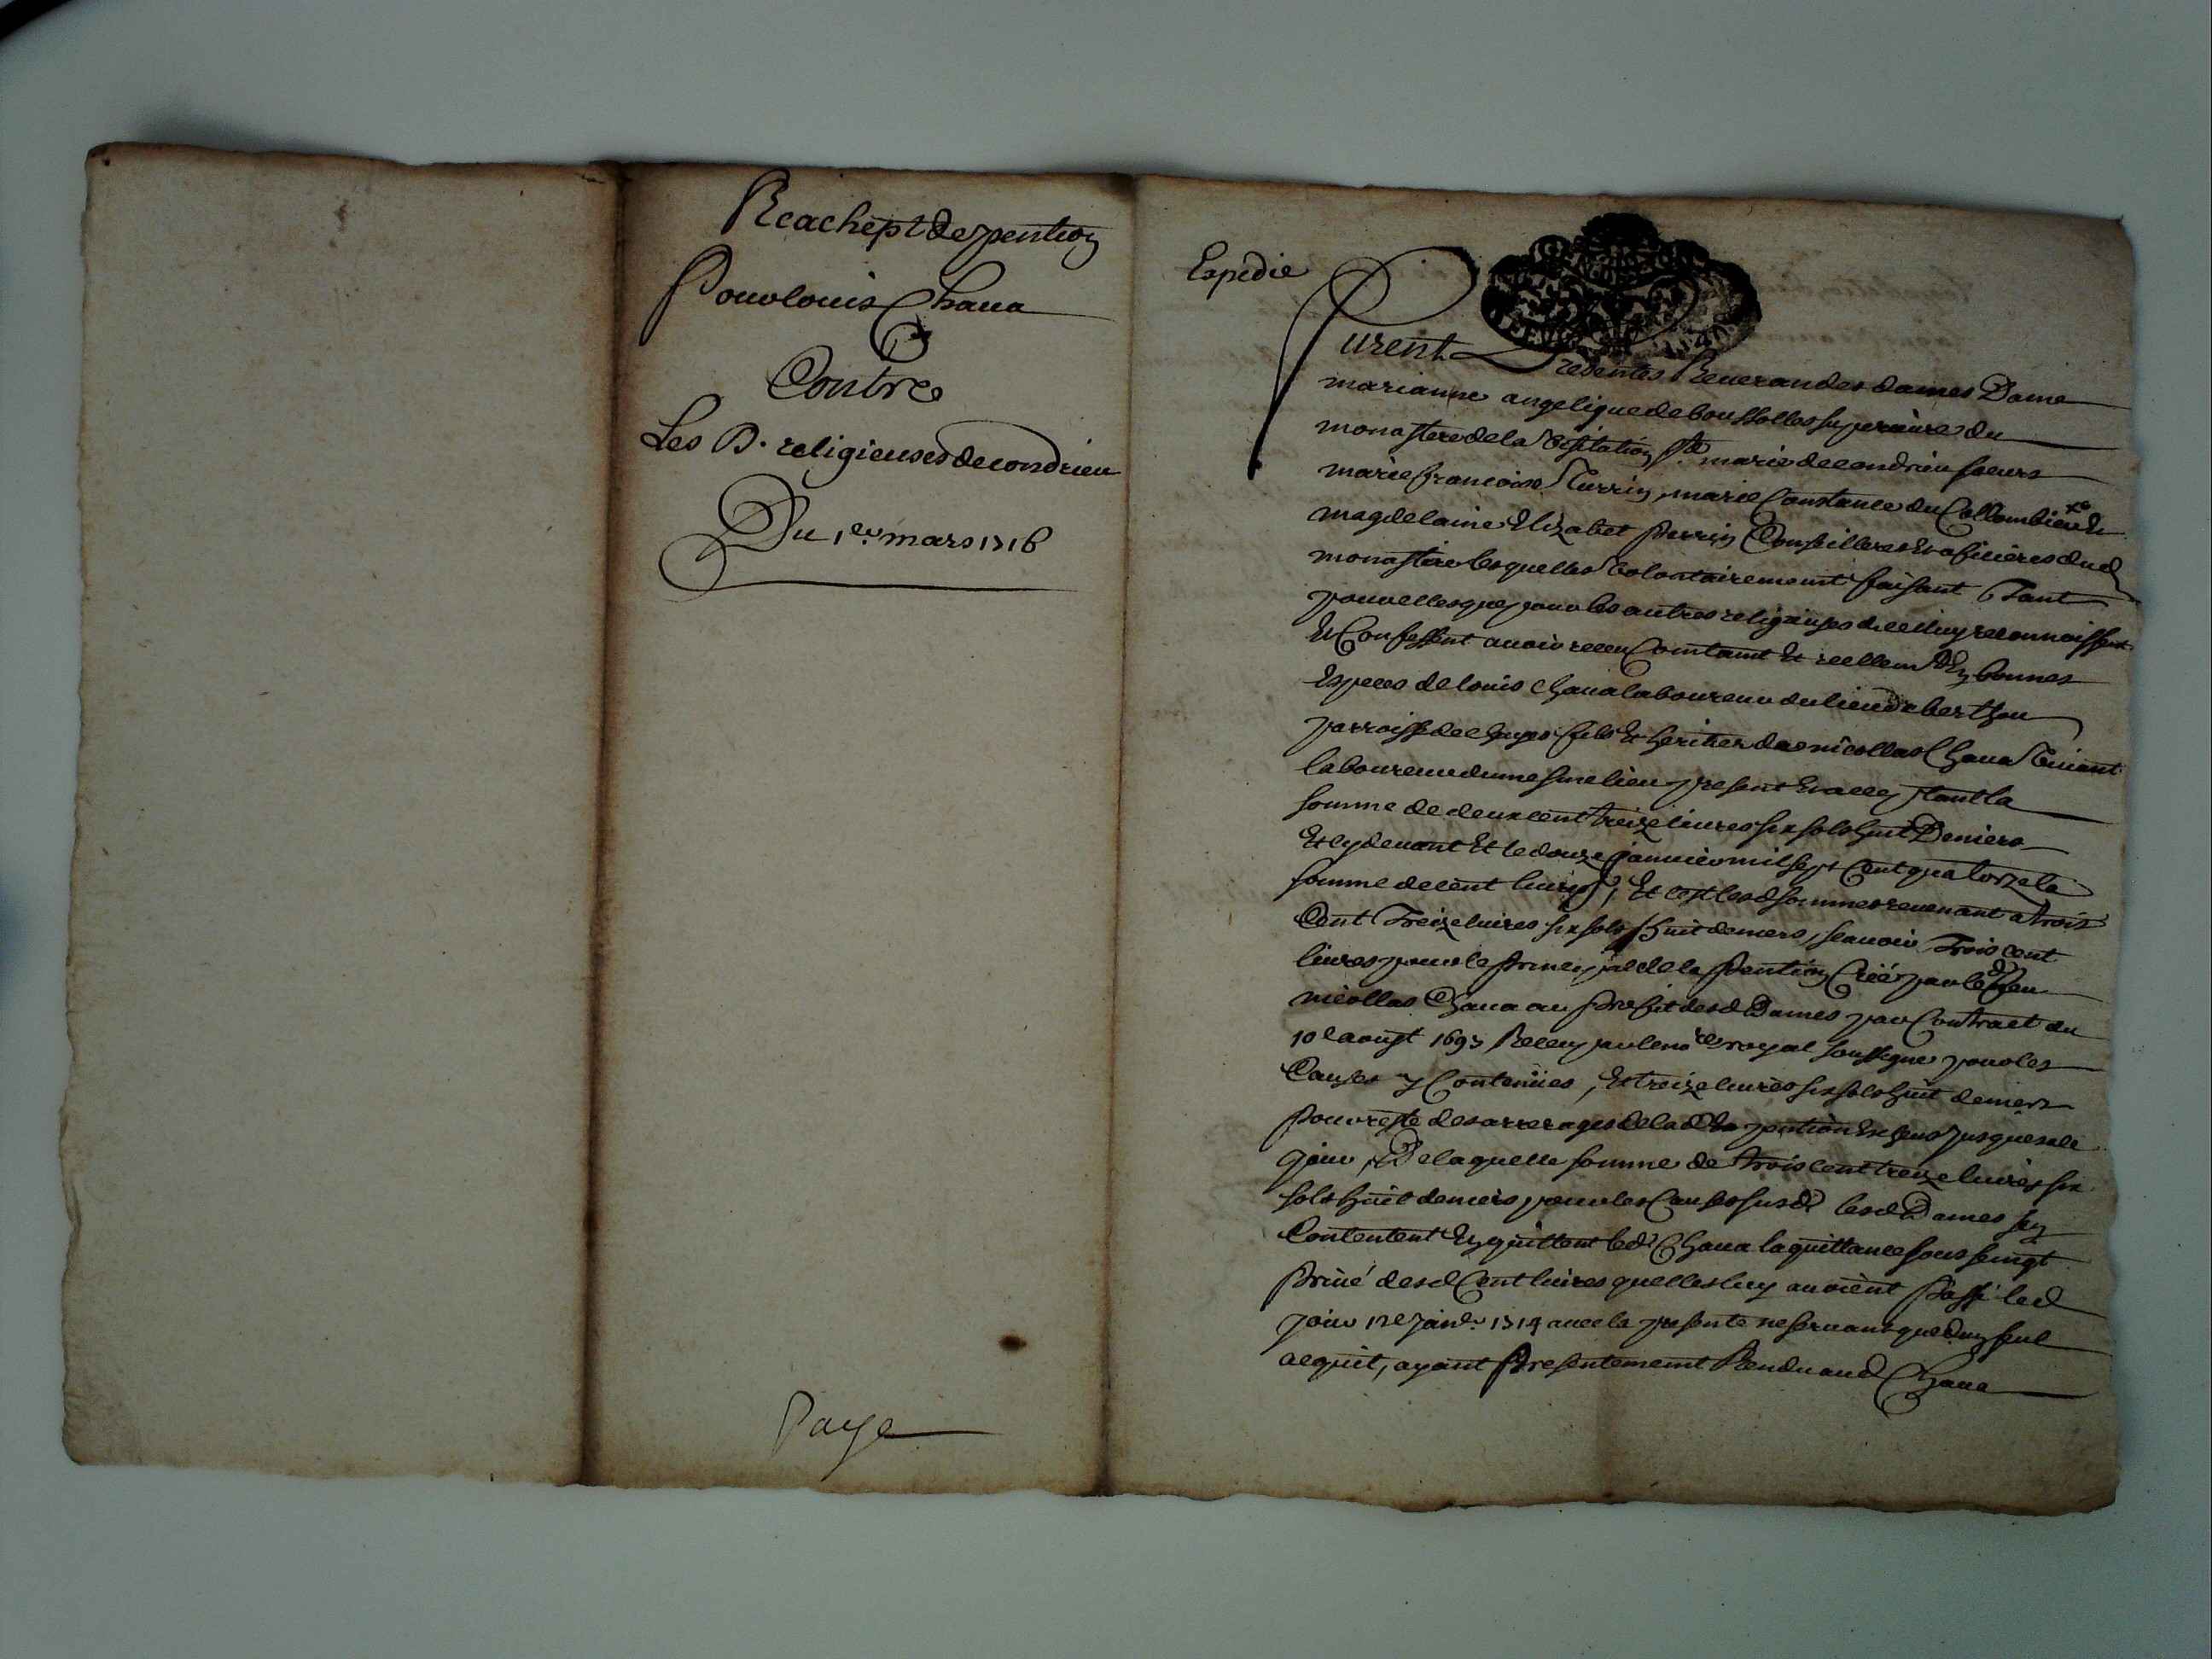 Reachept de pention
Pour louis Chaua
Contre
Les D. religieuses de condrieu
Du 1er. mars 1716
Paye
Expedie
Furent Presentes Reuerandes dames Dame
marianne angelique de boussolles superieure du
monastere de la Visitation Ste marie de condrieu soeurs
marie francoise Turrin, marie Constance du Collombier et
magdelaine Elizabet perrin Conseilleres et oficieres dud
monastere lesquelles Volontairement faisant Tant
pour elles que pour les autres religieuses diceluy reconnoissent
Et Confessent auoir receu Contant Et reellemt En bonnes
Especes de louis Chaua laboureur du lieu de berthou
parroisse de fils Et heritier de nicollas Chaua Viuant
laboureur du mesme lieu present Et acceptant la
somme de deux cent treize liures six sols huit Deniers
Et cy deuant Et le douze januier mil sept Cent quatorze la
somme de cent liures, Et cest lesd sommes reuenant a trois
Cent Treize liures six sols huit deniers, scauoir Trois cent
liures pour le principal de la pention Créé par led feu
nicollas Chaua au profit desd Dames par Contract du
10e aoust 1693 Receu par le nore royal soussigne pour les
Causes y Contenües, Et treize liures six sols huit deniers
pour reste des arrerages de lad pention Escheus jusques a ce
jour, De laquelle somme de trois cent treize liures six
sols huit deniers pour les Causes susd lesd Dames sen
Contentent En quittent led Chaua la quittance sous seingt
priué desd Cent liures quelles luy auoient passé led
jour 12e janr. 1714 auec la presente ne seruant que dun seul
acquit, ayant presentement Rendu aud Chaua